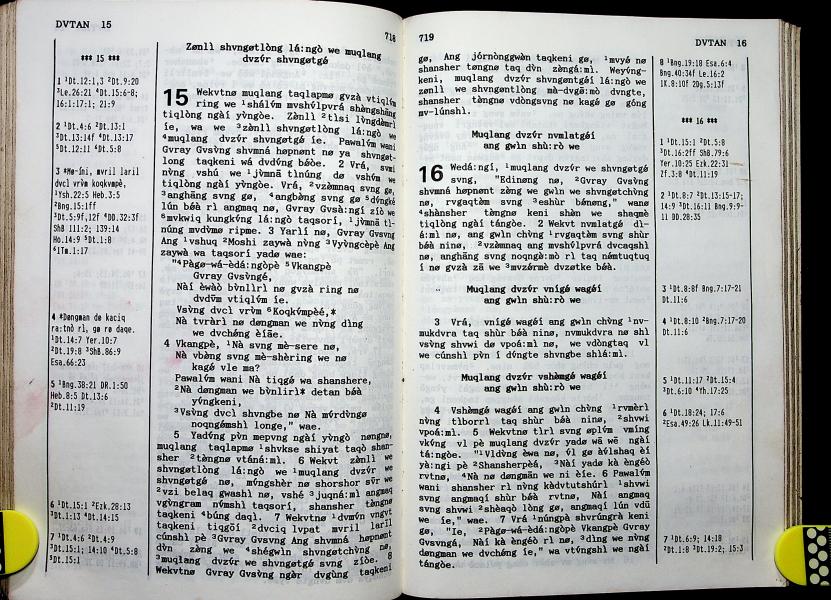 DVTAN 15
718
*** 15 ***
1 ¹Dt.12:1,3 ²Dt.9:20
³Le.26:21 ⁴Dt.15:6-8;
16:1;17:1; 21:9
2 ¹Dt.4:6 ²Dt.13:1
³Dt.13:14f ⁴Dt.13:17
⁵Dt.12:11 ⁶Dt.5:8
3 *Mø-íni, mvril laril
dvcl vrìm koqkvmpè,
¹Ysh.22:5 Heb.3:5
²Bng.15:1ff
³Dt.5:9f,12f ⁴DD.32:3f
ShB 111:2; 139:14
Ho.14:9 ⁵Dt.1:8
⁶1Tm.1:17
4 *Døngman dø kaciq
ra:tnò rl, gø rø daqe.
¹Dt.14:7 Yer.10:7
²Dt.19:8 ³ShB.86:9
Esa.66:23
5 ¹Bng.38:21 DR.1:50
Heb.8:5 Dt.13:6
²Dt.11:19
6 ¹Dt.15:1 ²Ezk.28:13
³Dt.1:13 ⁴Dt.14:15
7 ¹Dt.4:6 ²Dt.4:9
³Dt.15:1; 14:10 ⁴Dt.5:8
⁵Dt.15:1
Zønll shvngøtlòng lá:ngò we muqlang
dvzv́r shvngøtgé
15 Wekvtnø muqlang taqlapmø gvzà vtiqlv́m
ring we ¹shálv́m mvshv́lpvrá shèngshāng
tiqlòng ngàí yv̀ngòe. Zènll ²tlsi lv̀ngdèmrì
íe, wa we ³zènll shvngøtlòng lá:ngò we
⁴muqlang dvzv́r shvngøtgé íe. Pawalv́m wanì
Gvray Gvsv̀ng shvmná høpnønt nø ya shvngøt-
long taqkeni wá dvdv́ng béòe. 2 Vrá, svmì
nv̀ng vshú we ¹jv̀mnā tlnúng dø vshv́m we
tiqlòng ngàí yv̀ngòe. Vrá, ²vzèmnaq svng gø,
³anghāng svng gø, ⁴angbèng svng gø ⁵dv́ngké
lún béà rl angmaq nø, Gvray Gvsà:ngí zíò we
⁶mvkwiq kungkv́ng lá:ngò taqsorí, ¹jv̀mnā tl-
núng mvdv̀mø rìpme. 3 Yarlí nø, Gvray Gvsv̀ng
Ang ¹vshuq ²Moshi zaywà nv̀ng ³Vyv̀ngcèpè Ang
zaywà wa taqsorí yadø wae:
"⁴Pàgø-wá-èdá:ngòpè ⁵Vkangpè
Gvray Gvsv̀ngé,
Nàí èwàò bv̀nllrì nø gvzà ring nø
dvdv̄m vtiqlv́m íe.
Vsv̀ng dvcl vrv̀m ⁶Koqkv́mpèé,*
Nà tvràrì nø døngman we nv̀ng dlng
we dvchéng èíāe.
4 Vkangpè, ¹Nà svng mè-sere nø,
Nà vbèng svng mè-shèring we nø
kagé vle ma?
Pawalv́m wanì Nà tiqgé wa shanshere,
²Nà døngman we bv̀nllrì* detan béà
yv́ngkeni,
³Vsv̀ng dvcl shvngbe nø Nà mv́rdv̀ngø
noqngémshì longe," wae.
5 Yadv́ng pv̀n mepvng ngàí yv̀ngò nøngnø,
muqlang taqlapmø ¹shvkse shiyat taqò shan-
sher ²tèngnø vtáná:mì. 6 Wekvt zènll we
shvngøtlòng lá:ngò we ¹muqlang dvzv́r we
shvngøtgé nø, mv́ngshèr nø shorshor sv̄r we
²vzi belaq gwashì nø, vshé ³juqná:mì angmaq
vgv̀ngram nv́mshì taqsorí, shansher tèngnø
taqkeni ⁴búng daqì. 7 Wekvtnø ¹dvmv́n vngvt
taqkeni tiqgōí ²dvciq lvpat mvril laril
cúnshì pè ³Gvray Gvsv̀ng Ang shvmná høpnønt
dv̀n zèng we ⁴shégwìn shvngøtchv̀ng nø,
⁵muqlang dvzv́r we shvngøtgé svng zíòe. 8
Wekvtnø Gvray Gvsv̀ng ngàr dvgùng taqkeni
719
DVTAN 16
gø, Ang jórnònggwàn taqkeni gø, ¹mvyé nø
shansher tøngnø taq dv̀n zèngá:mì. Weyv́ng-
keni, muqlang dvzv́r shvngøntgéí lá:ngò we
zènll we shvngøntlòng mà-dvgē:mò dvngte,
shansher tèngnø vdòngsvng nø kagé gø góng
mv-lúnshì.
Muqlang dvzv́r nvmlatgéí
ang gwln shù:rò we
16 Wedá:ngí, ¹muqlang dvzv́r we shvngøtgé
svng, "Edinøng nø, ²Gvray Gvsv̀ng
shvmná høpnønt zèng we gwln we shvngøtchv̀ng
nø, rvgaqtèm svng ³eshùr bénøng," wanø
⁴shànsher tèngnø keni shèn we shaqmè
tiqlòng ngàí tángòe. 2 Wekvt nvmlatgé dl-
á:mì nø, ang gwln chv̀ng ¹rvgaqtèm svng shùr
béà ninø, ²vzèmnaq ang mvshv́lpvrá dvcaqshì
nø, anghāng svng noqngè:mò rl taq némtuqtuq
í nø gvzà zā we ³mvzérmè dvzøtke béà.
Muqlang dvzv́r vnígé wagéí
ang gwln shù:rò we
3 Vrá, vnígé wagéí ang gwln chv̀ng ¹nv-
mukdvra taq shùr béà ninø, nvmukdvra nø shl
vsv̀ng shvwi dø vpoá:mì nø, we vdòngtaq vl
we cúnshì pv̀n í dv́ngte shvngbe shlá:mì.
Muqlang dvzv́r vshømgé wagéí
ang gwln shù:rò we
4 Vshèmgé wagéí ang gwln chv̀ng ¹rvmèrì
nv̀ng tlborrì taq shùr béà ninø, ²shvwì
vpoá:mì. 5 Wekvtnø tlrì svng øplv́m vmíng
vkv́ng vl pè muqlang dvzv́r yadø wā wē ngàí
tá:ngòe. "¹Vldv̀ng èwa nø, v́l gø àv́lshaq èì
yà:ngì pè ²Shansherpèá, ³Nàí yadø kà èngéò
rvtnø, ⁴Nà nø døngman we nì èì. 6 Pawalv́m
wanì shansher rì nv̀ng kàdvtutshúrì ¹shvwì
svng angmaqí shùr béà rvtnø, Nàí angmaq
svng ²shèaqò lòng gø, angmaqí lún vdū
we íe," wae. 7 Vrá ¹núngpàn shvrúngrà keni
gø, "Íe, ²Pàgø-wá-èdá:ngòpè Vkangpè Gvray
Gvsvngá, Nàí kà èngéò rì nø, ³dlng we nv̀ng
døngman we dvchéng íe," wa vtv́ngshì we ngàí
tángòe.
8 ¹Bng.19:18 Esa.6:4
Bng.40:34f Le.16:2
1K.8:10f 2Dg.5:13f
*** 16 ***
1 ¹Dt.15:1 ²Dt.5:8
³Dt.16:2ff ShB.79:6
Yer.10:25 Ezk.22:31
Zf.3:8 ⁴Dt.11:19
2 ¹Dt.8:7 ²Dt.13:15-17;
14:9 ³Dt.16:11 Bng.9:9-
11 DD.28:35
3 ¹Dt.8:8f Bng.7:17-21
Dt.11:6
4 ¹Dt.8:10 ²Bng.7:17-20
Dt.11:6
5 ¹Dt.11:17 ²Dt.15:4
³Dt.6:10 ⁴Yh.17:25
6 ¹Dt.18:24; 17:6
²Esa.49:26 Lk.11:49-51
7 ¹Dt.6:9; 14:18
²Dt.1:8 ³Dt.19:2; 15:3